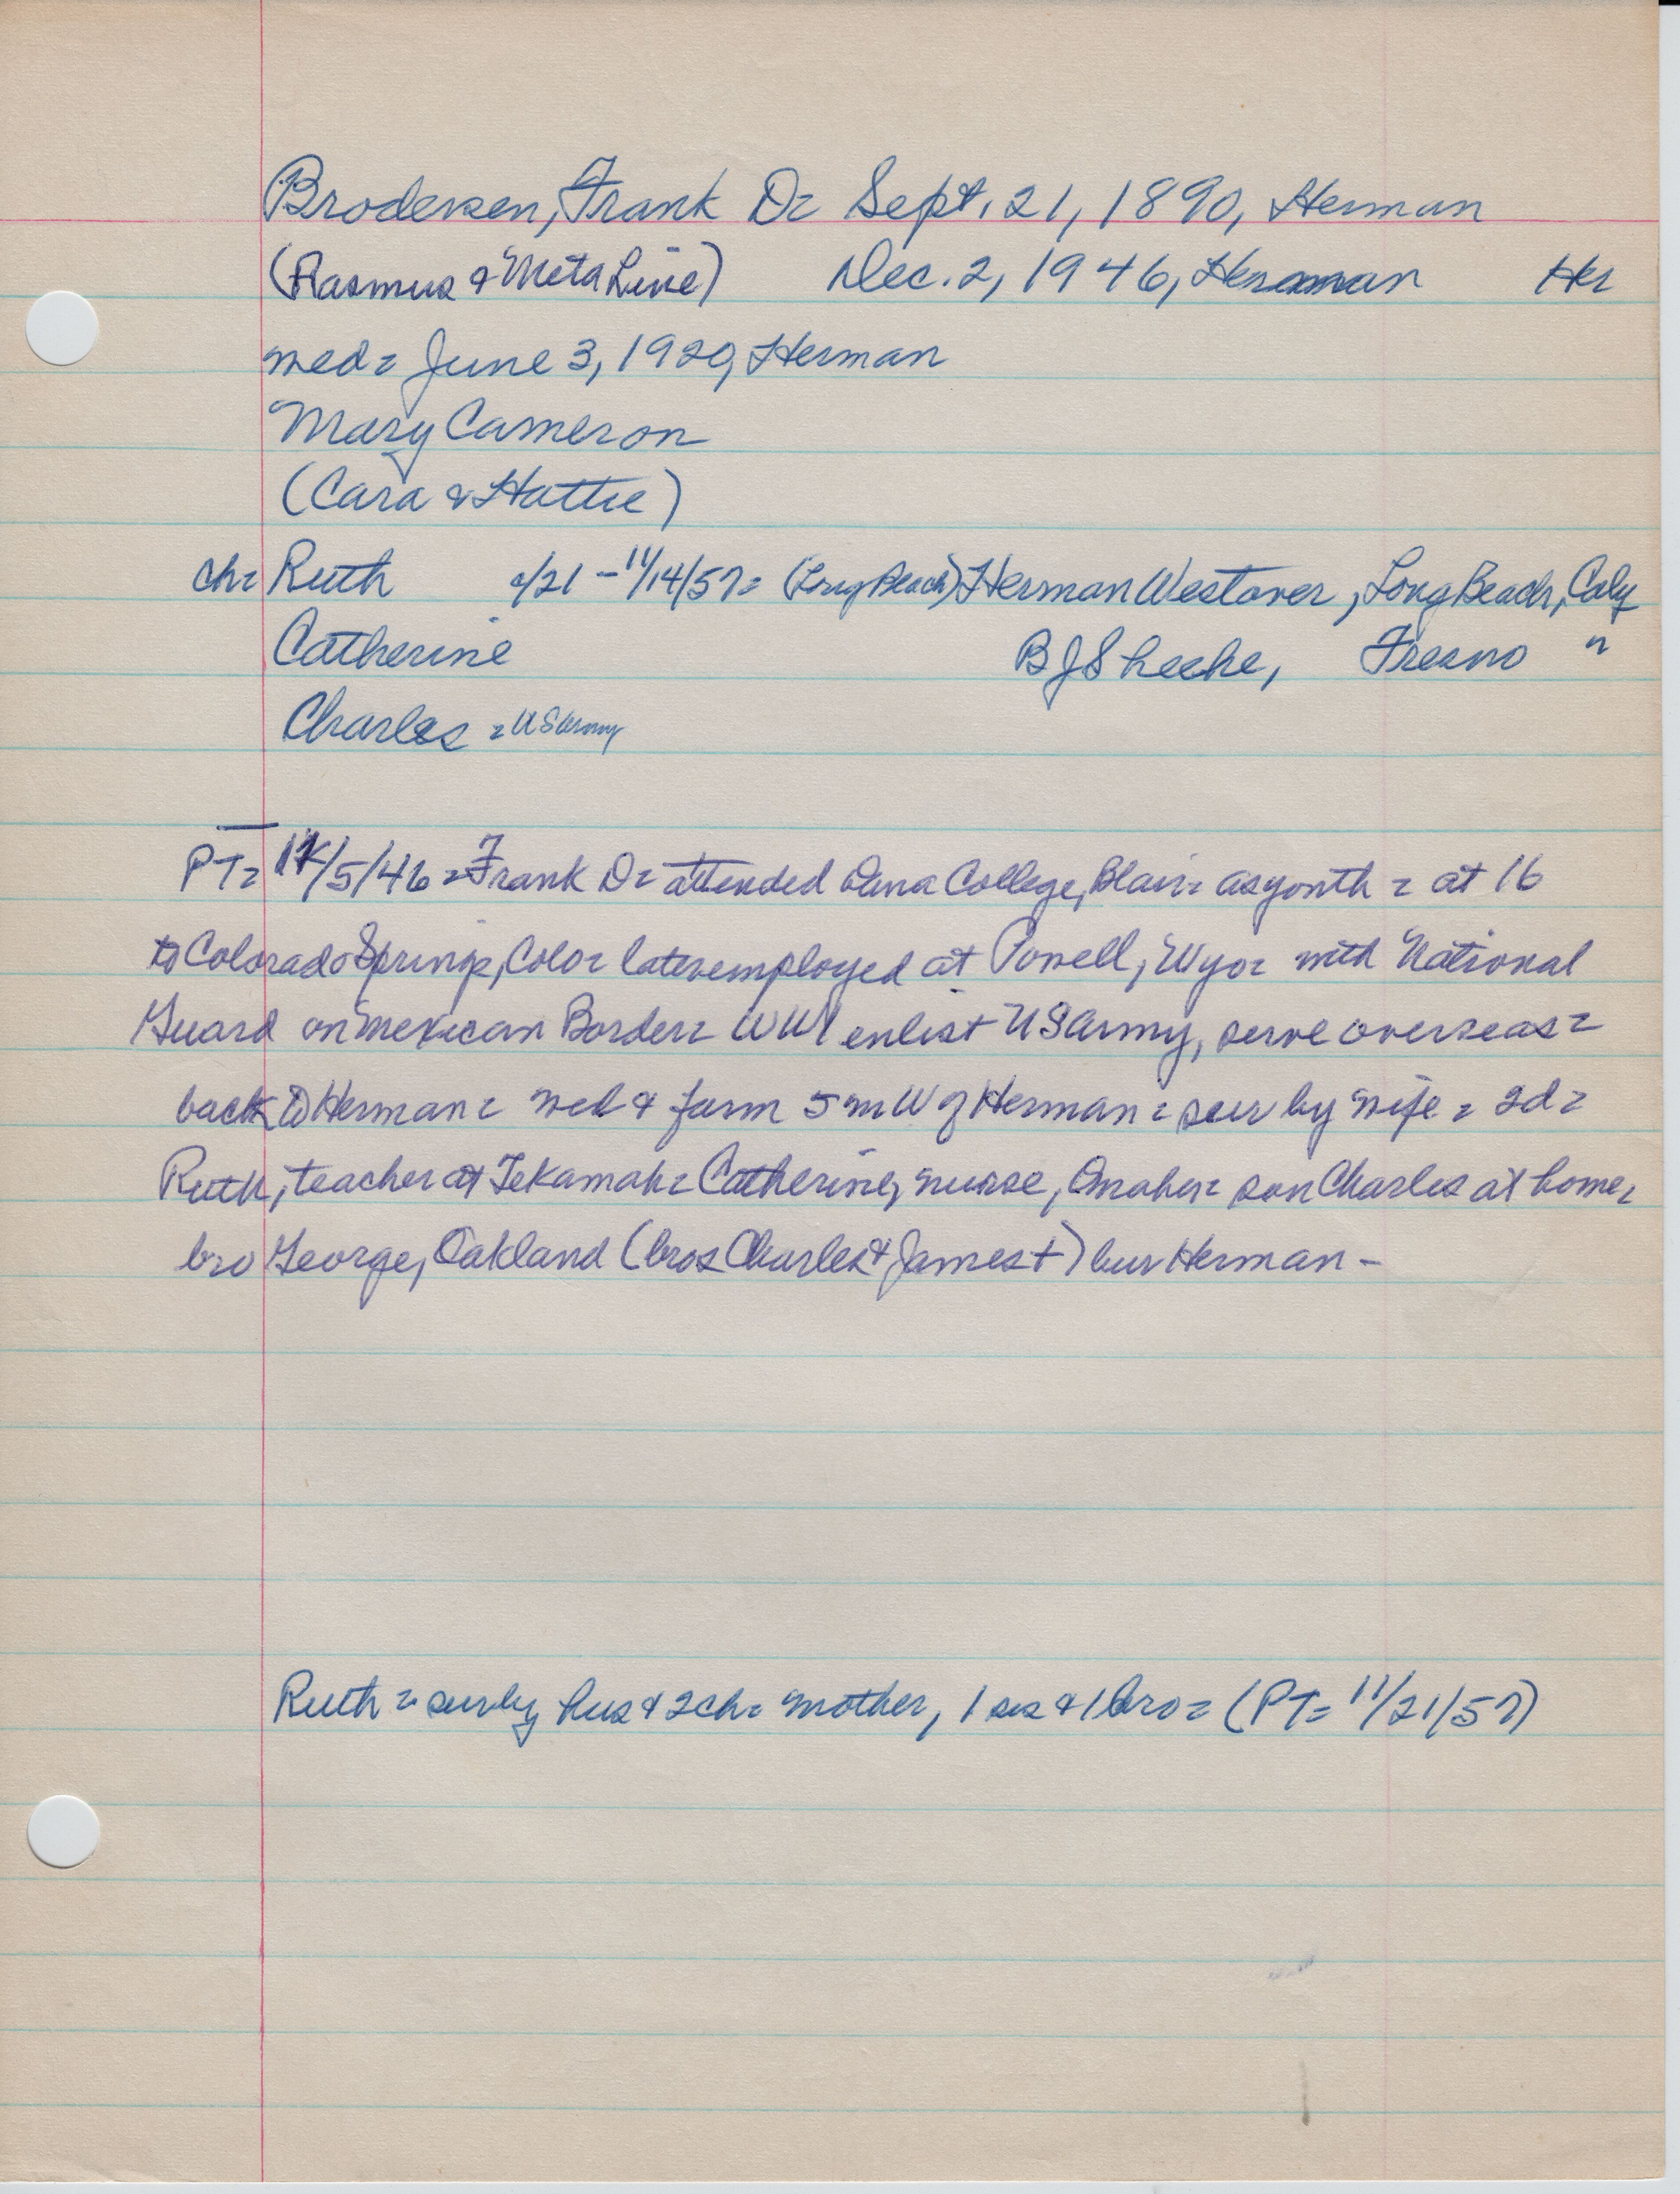 Brodersen, Frank D= Sept. 21, 1890, Herman
(Rasmus & Meta Line) Dec. 2, 1946, Herman Her
wed= June 3, 1920, Herman
Mary Cameron
(Cara & Hattie)
ch= Ruth /21 - 11/14/57= (Long Beach) Herman Westover, Long Beach, Calif
Catherine B J Sheehe, Fresno "
Charles = US Army
PT= 12/5/46 = Frank D= attended Dana College, Blair= as youth = at 16
to Colorado Springs, Colo= later employed at Powell, Wyo= with National
Guard on Mexican Border= WW1 enlist US Army, serve overseas=
back to Herman= wed & farm 5 m W of Herman = sur by wife = 2d=
Ruth, teacher at Tekamah= Catherine, nurse, Omaha= son Charles at home=
bro George, Oakland (bros Charles & James +) bur Herman -
Ruth = sur by hus & 2ch= mother, 1 sis & 1 bro= (PT= 11/21/57)